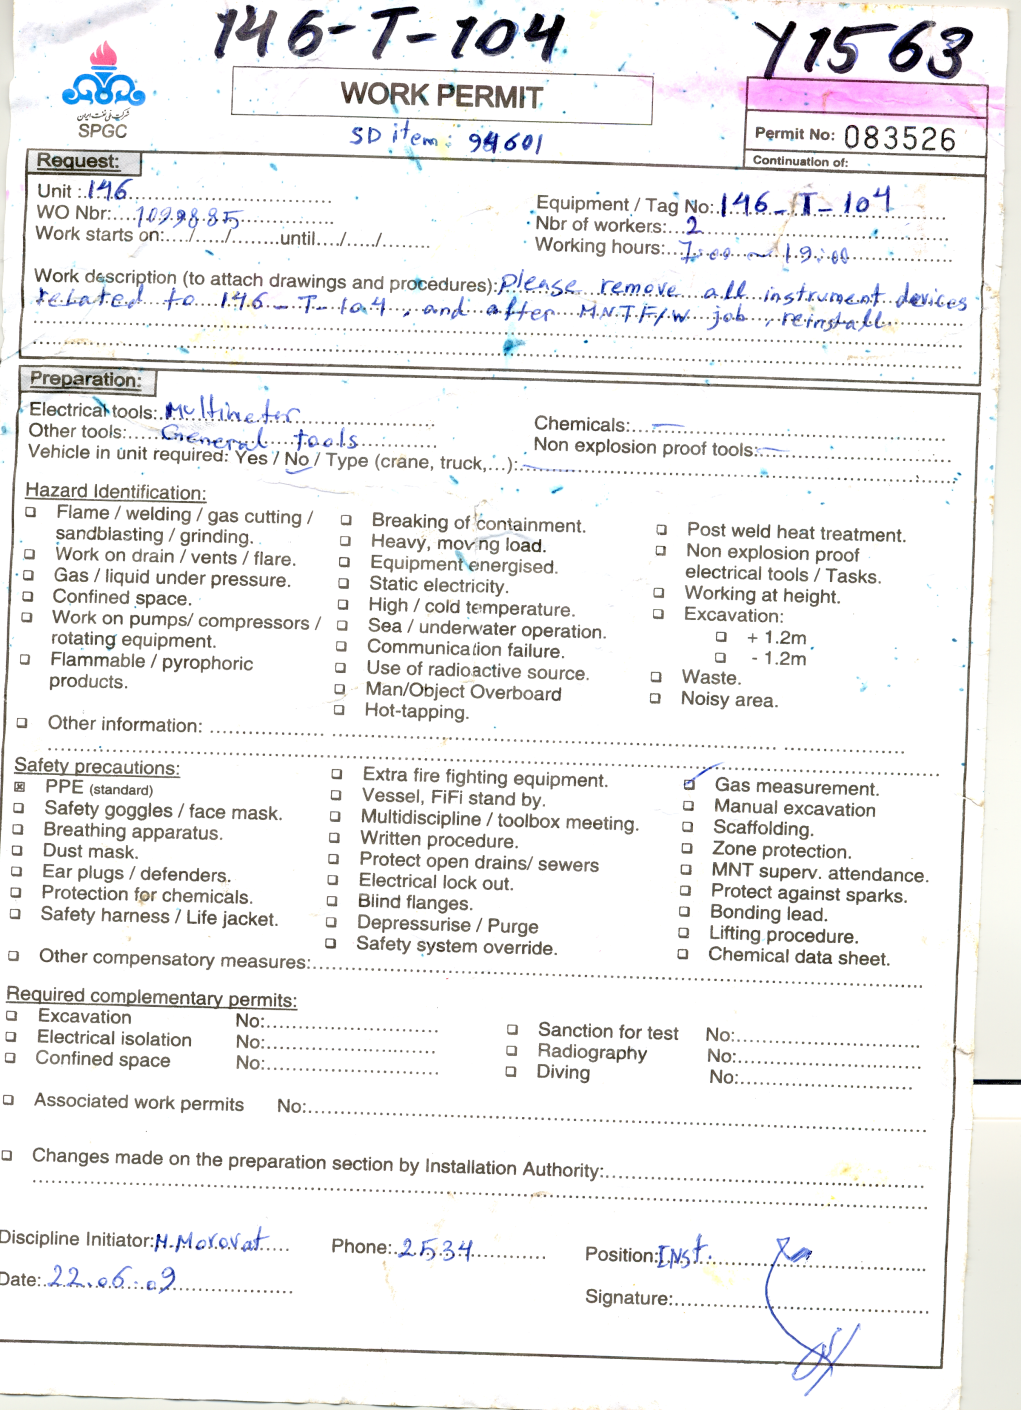 146-T-104
Y1563
WORK PERMIT
SPGC
SD item: 94601
Permit No: 083526
Continuation of:
Request:
Unit : 146
Equipment / Tag No: 146-T-104
WO Nbr: 1099885
Nbr of workers: 2
Work starts on:..../...../.........until..../...../........
Working hours: 7:00 ~ 19:00
Work description (to attach drawings and procedures): Please remove all instrument devices
related to 146-T-104, and after MNTF/W job, reinstall.
Preparation:
Electrical tools: Multimeter
Chemicals: —
Other tools: General tools
Non explosion proof tools: —
Vehicle in unit required: Yes / No / Type (crane, truck,...): —
Hazard Identification:
Flame / welding / gas cutting /
sandblasting / grinding.
Work on drain / vents / flare.
Gas / liquid under pressure.
Confined space.
Work on pumps/ compressors /
rotating equipment.
Flammable / pyrophoric
products.
Breaking of containment.
Heavy, moving load.
Equipment energised.
Static electricity.
High / cold temperature.
Sea / underwater operation.
Communication failure.
Use of radioactive source.
Man/Object Overboard
Hot-tapping.
Post weld heat treatment.
Non explosion proof
electrical tools / Tasks.
Working at height.
Excavation:
+ 1.2m
- 1.2m
Waste.
Noisy area.
Other information:
Safety precautions:
PPE (standard)
Safety goggles / face mask.
Breathing apparatus.
Dust mask.
Ear plugs / defenders.
Protection for chemicals.
Safety harness / Life jacket.
Extra fire fighting equipment.
Vessel, FiFi stand by.
Multidiscipline / toolbox meeting.
Written procedure.
Protect open drains/ sewers
Electrical lock out.
Blind flanges.
Depressurise / Purge
Safety system override.
Gas measurement.
Manual excavation
Scaffolding.
Zone protection.
MNT superv. attendance.
Protect against sparks.
Bonding lead.
Lifting procedure.
Chemical data sheet.
Other compensatory measures:
Required complementary permits:
Excavation No:
Electrical isolation No:
Confined space No:
Sanction for test No:
Radiography No:
Diving No:
Associated work permits No:
Changes made on the preparation section by Installation Authority:
Discipline Initiator: H.Morovat
Phone: 2534
Position: Inst.
Date: 22.06.09
Signature: